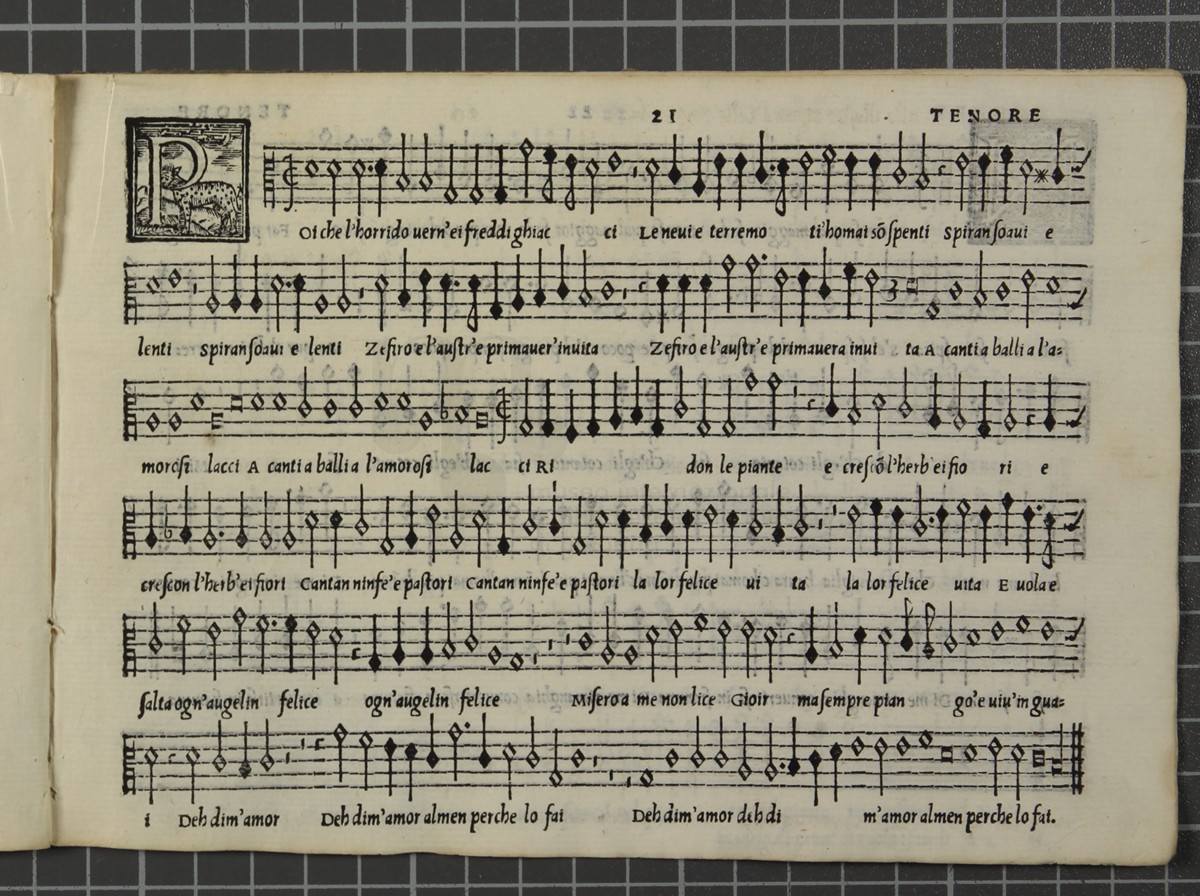 21 TENORE
POi che l'horrido uern'ei freddi ghiac ci Le neui e terremo ti'homai sõ spenti Spiran soaui e
lenti Spiran soaui e lenti Zefiro e l'austr'e primauer'inuita Zefiro e l'austr'e primauera inui ta A canti a balli a l'a=
morosi lacci A canti a balli a l'amorosi lac ci Ri don le piante e crescõ l'herb'ei fio ri e
crescon l'herb'ei fiori Cantan ninfe'e pastori Cantan ninfe'e pastori la lor felice ui ta la lor felice uita E uola e
salta ogn'augelin felice ogn'augelin felice Misero a me non lice Gioir ma sempre pian go'e uiu'in gua=
i Deh dim'amor Deh dim'amor almen perche lo fai Deh dim'amor deh di m'amor almen perche lo fai.